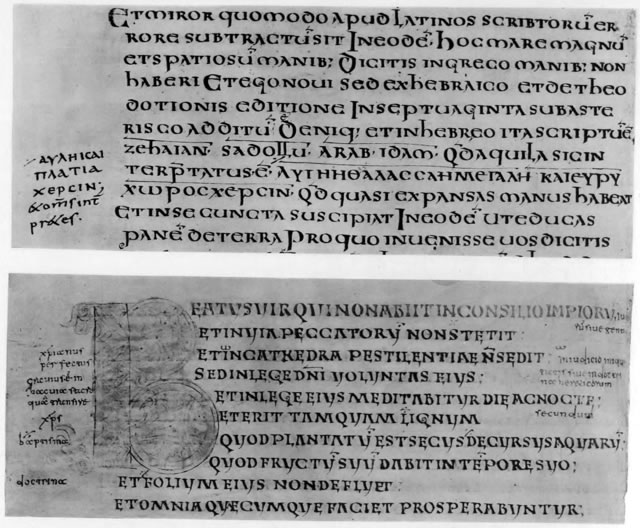 ET MIROR QUOMODO APUD LATINOS SCRIPTORŪ ER
RORE SUBTRACTŪ SIT IN EODĒ· HOC MARE MAGNŪ
ET SPATIOSŪ MANIB; DICITIS IN GRECO MANIB; NON
HABERI ET EGO NOVI SED EX HEBRAICO ET DE THEO
DOTIONIS EDITIONE IN SEPTUAGINTA SUB ASTE
RISCO ADDITŪ DENIQ; ET IN HEBREO ITA SCRIPTŪ Ē·
ZEHAIAN· SADOLLU· ARAB· IDAM· QD AQUILA SIC IN
TERPTATUS·Ē· ΑΥΤΗ Η ΘΑΛΑССΑ Η ΜΕΓΑΛΗ ΚΑΙ ΕΥΡΥ
ΧѠΡΟС ΧΕΡСΙΝ· QD QUASI EXPANSAS MANUS HABEAT
ET IN SE CUNCTA SUSCIPIAT IN EODĒ UT EDUCAS
PANĒ DE TERRA PRO QUO INVENISSE VOS DICITIS
ΠΛΑΤΙΑ
ΧΕΡСΙΝ;
BEATUS VIR QUI NON ABIIT IN CONSILIO IMPIORŪ
ET IN VIA PECCATORŪ NON STETIT:
ET IN CATHEDRA PESTILENTIAE N̄ SEDIT:
SED IN LEGE DN̄I VOLUNTAS EIUS:
ET IN LEGE EIUS MEDITABITUR DIE AC NOCTE:
ET ERIT TAMQUAM LIGNUM
QUOD PLANTATŪ EST SECUS DECURSUS AQUARŪ:
QUOD FRUCTŪ SUŪ DABIT IN TĒPORE SUO:
ET FOLIUM EIUS NON DEFLUET:
ET OMNIA QUECUMQUE FACIET PROSPERABUNTUR:
secundum